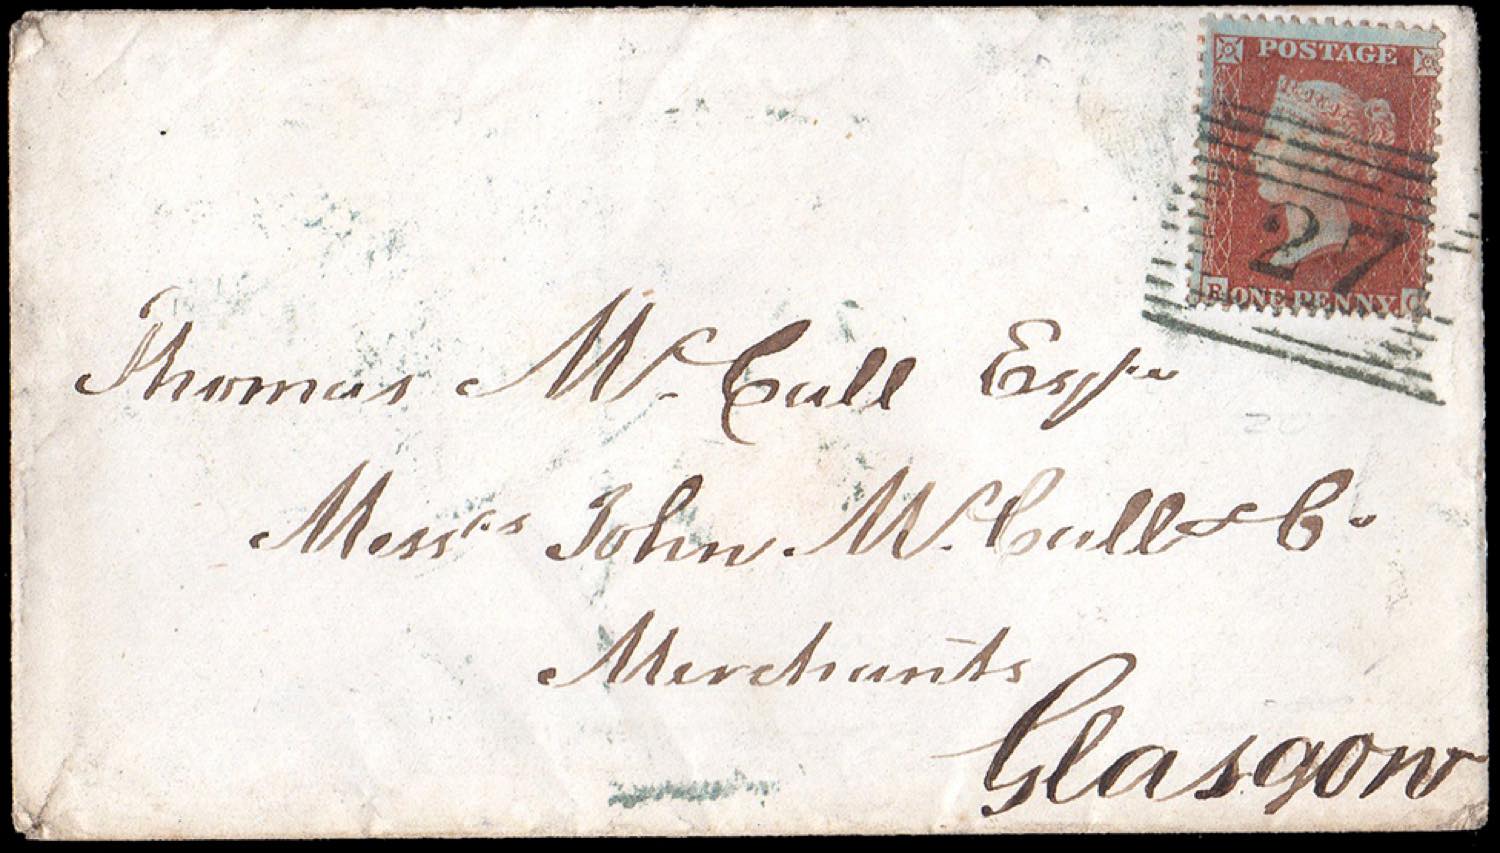 POSTAGE
27
R ONE PENNY C
Thomas McCall Esqre
Messrs John McCall & Co.
Merchants
Glasgow